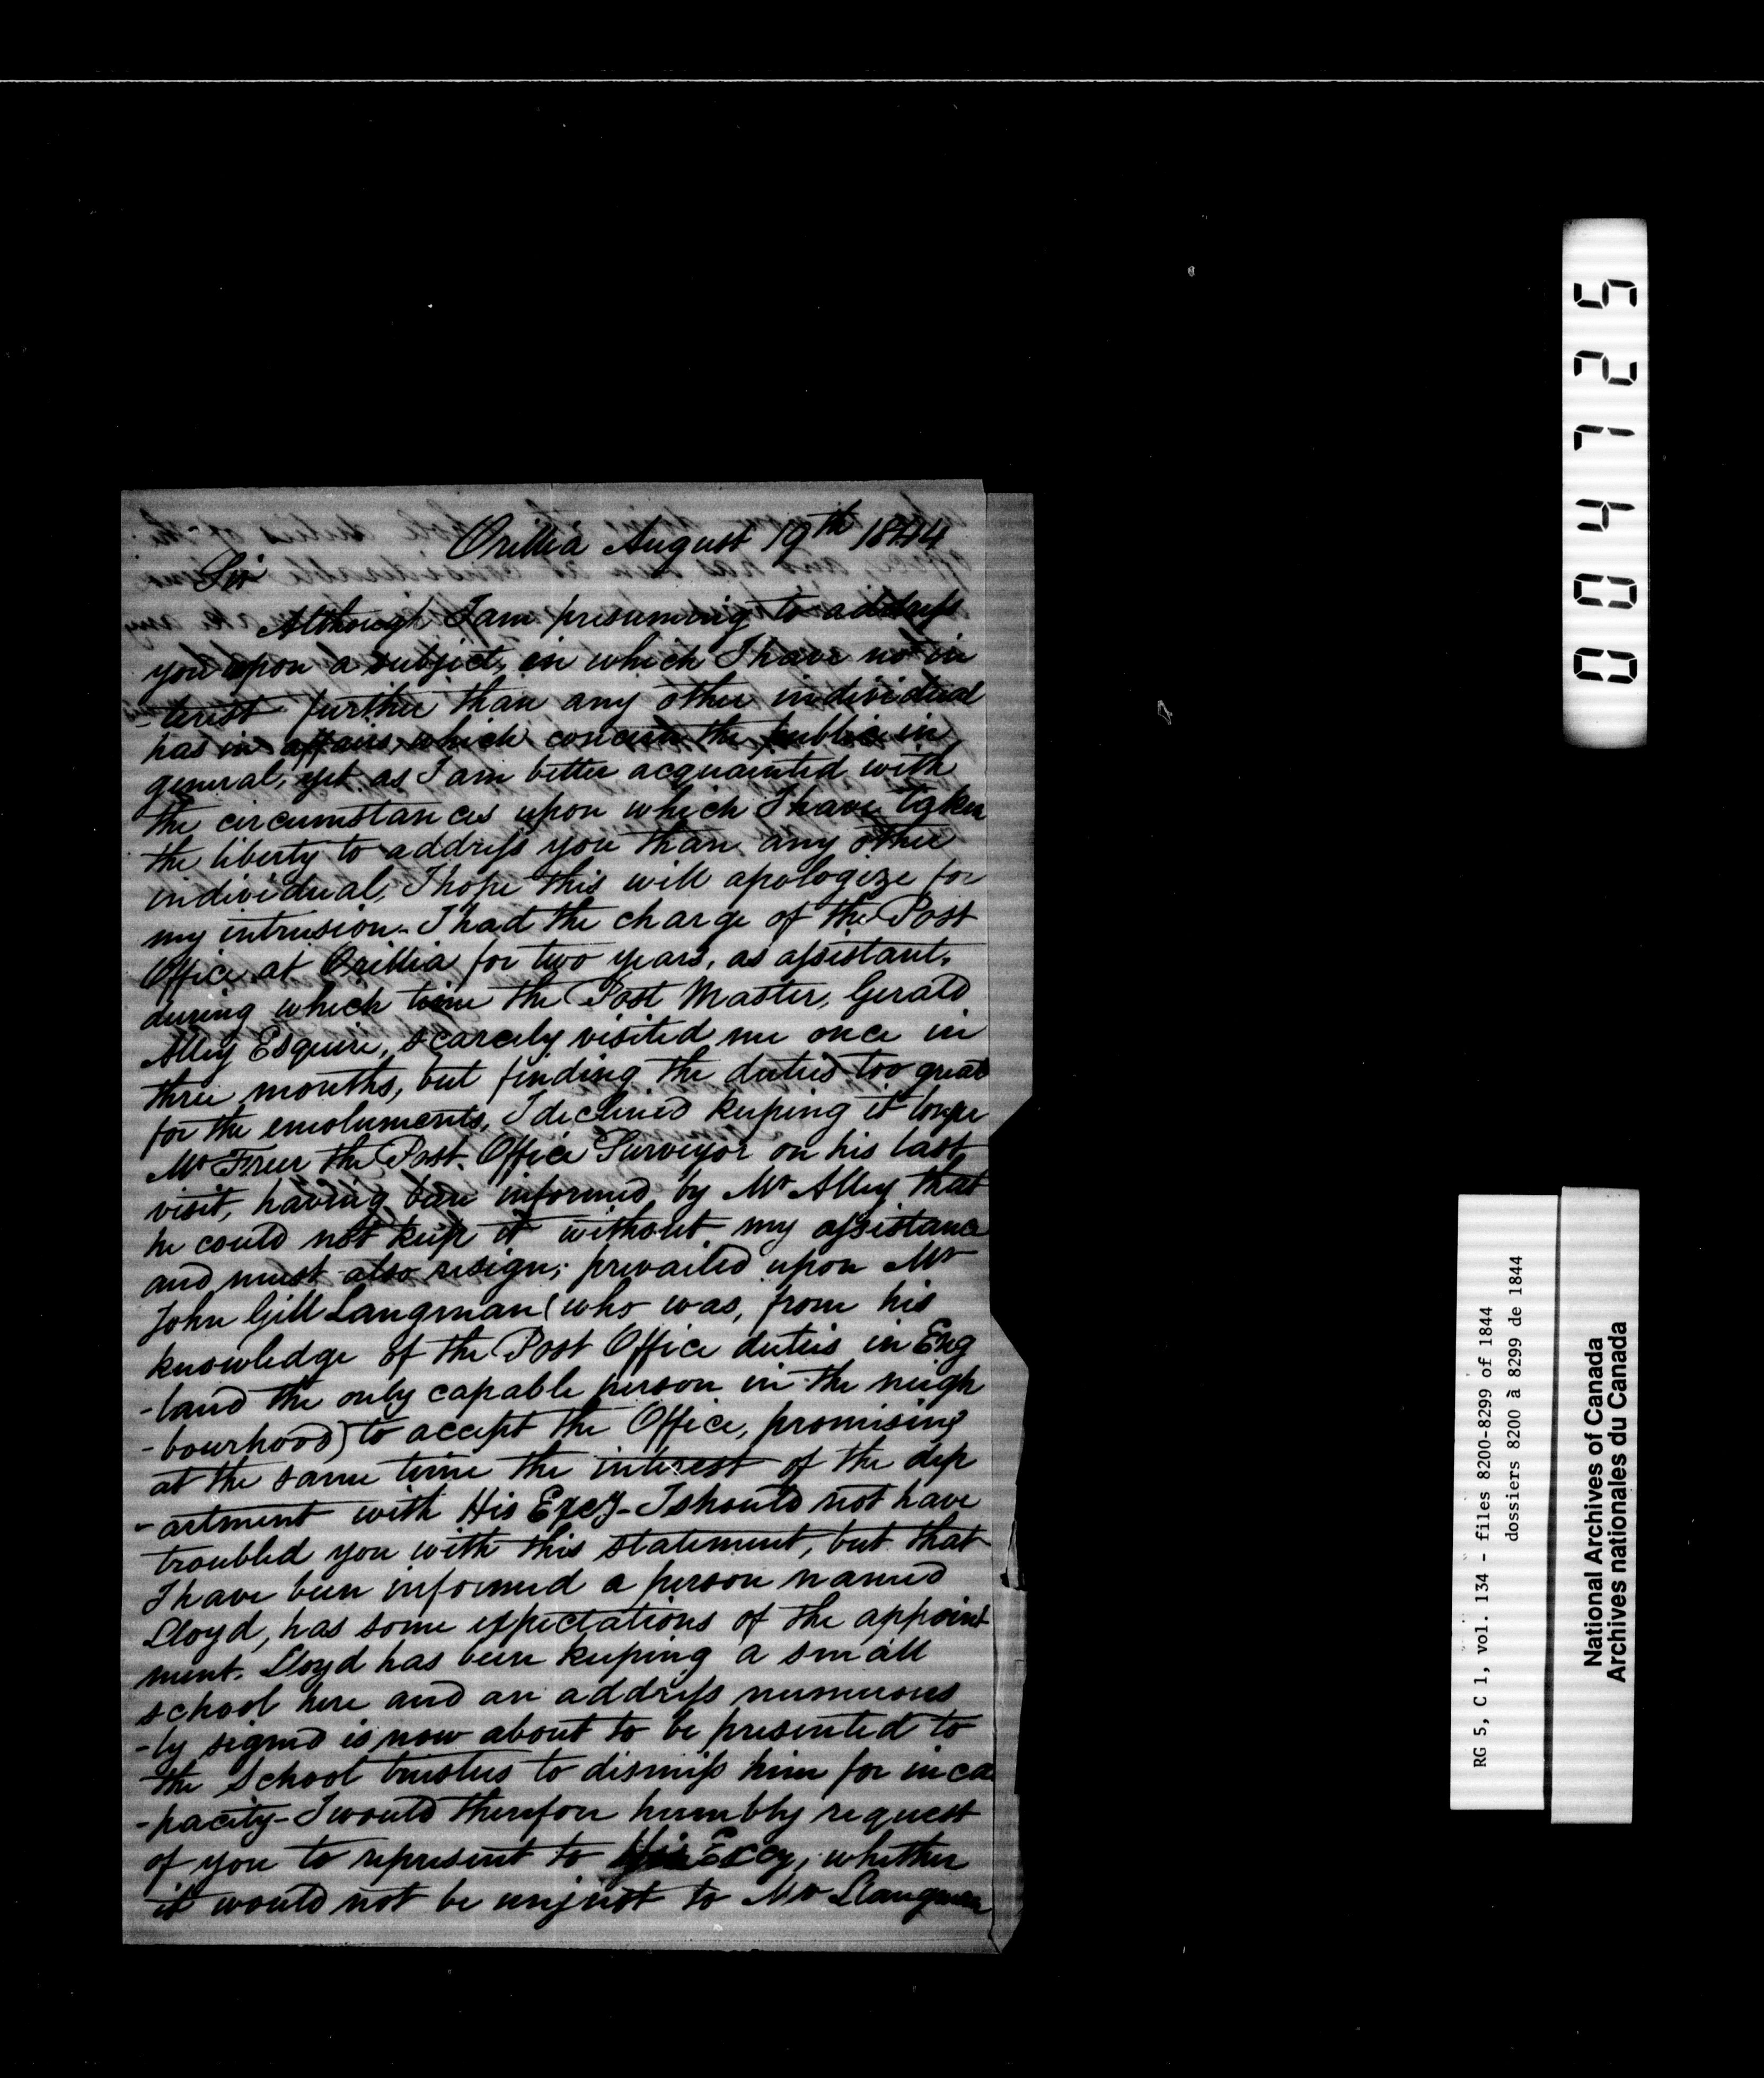 Orillia August 19th 1844
Sir
Although I am presuming to address
you upon a subject, in which I have no in
-terest further than any other individual
has in affairs which concern the public in
general, yet as I am better acquainted with
the circumstances upon which I have taken
the liberty to address you than any other
individual, I hope this will apologize for
my intrusion - I had the charge of the Post
Office at Orillia for two years, as assistant,
during which time the Post Master, Gerald
Alley Esquire, scarcely visited me once in
three months, but finding the duties too great
for the emoluments, I declined keeping it longer
Mr Freer the Post Office Surveyor on his last
visit, having been informed by Mr Alley that
he could not keep it without my assistance
and must also resign; prevailed upon Mr
John Gill Langman (who was, from his
knowledge of the Post Office duties in Eng
-land the only capable person in the neigh
-bourhood) to accept the Office, promising
at the same time the interest of the dep
-artment with His Excy - I should not have
troubled you with this statement, but that
I have been informed a person named
Lloyd, has some expectations of the appoint
ment. Lloyd has been keeping a small
school here and an address numerous
-ly signed is now about to be presented to
the School trustees to dismiss him for inca
-pacity - I would therefore humbly request
of you to represent to His Excy, whether
it would not be unjust to Mr Langman
004725
RG 5, C 1, vol. 134 - files 8200-8299 of 1844
dossiers 8200 à 8299 de 1844
National Archives of Canada
Archives nationales du Canada